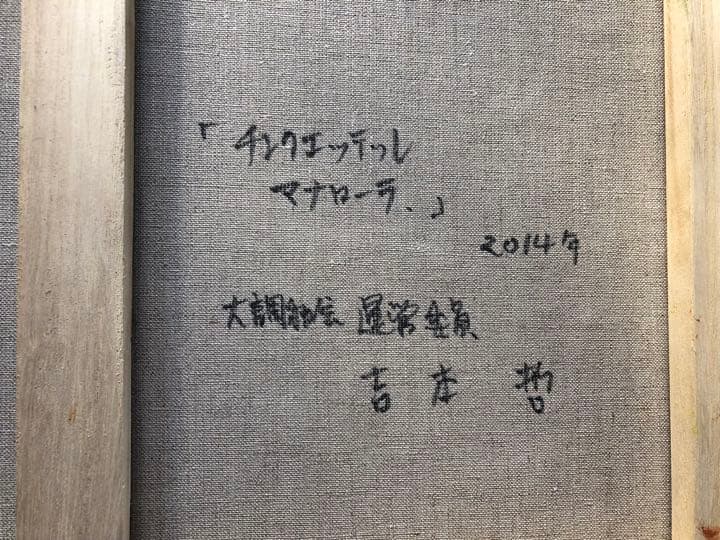 「チンクエッテッレ
マナローラ、」
2014年
大調和会 運営委員
吉本 哲